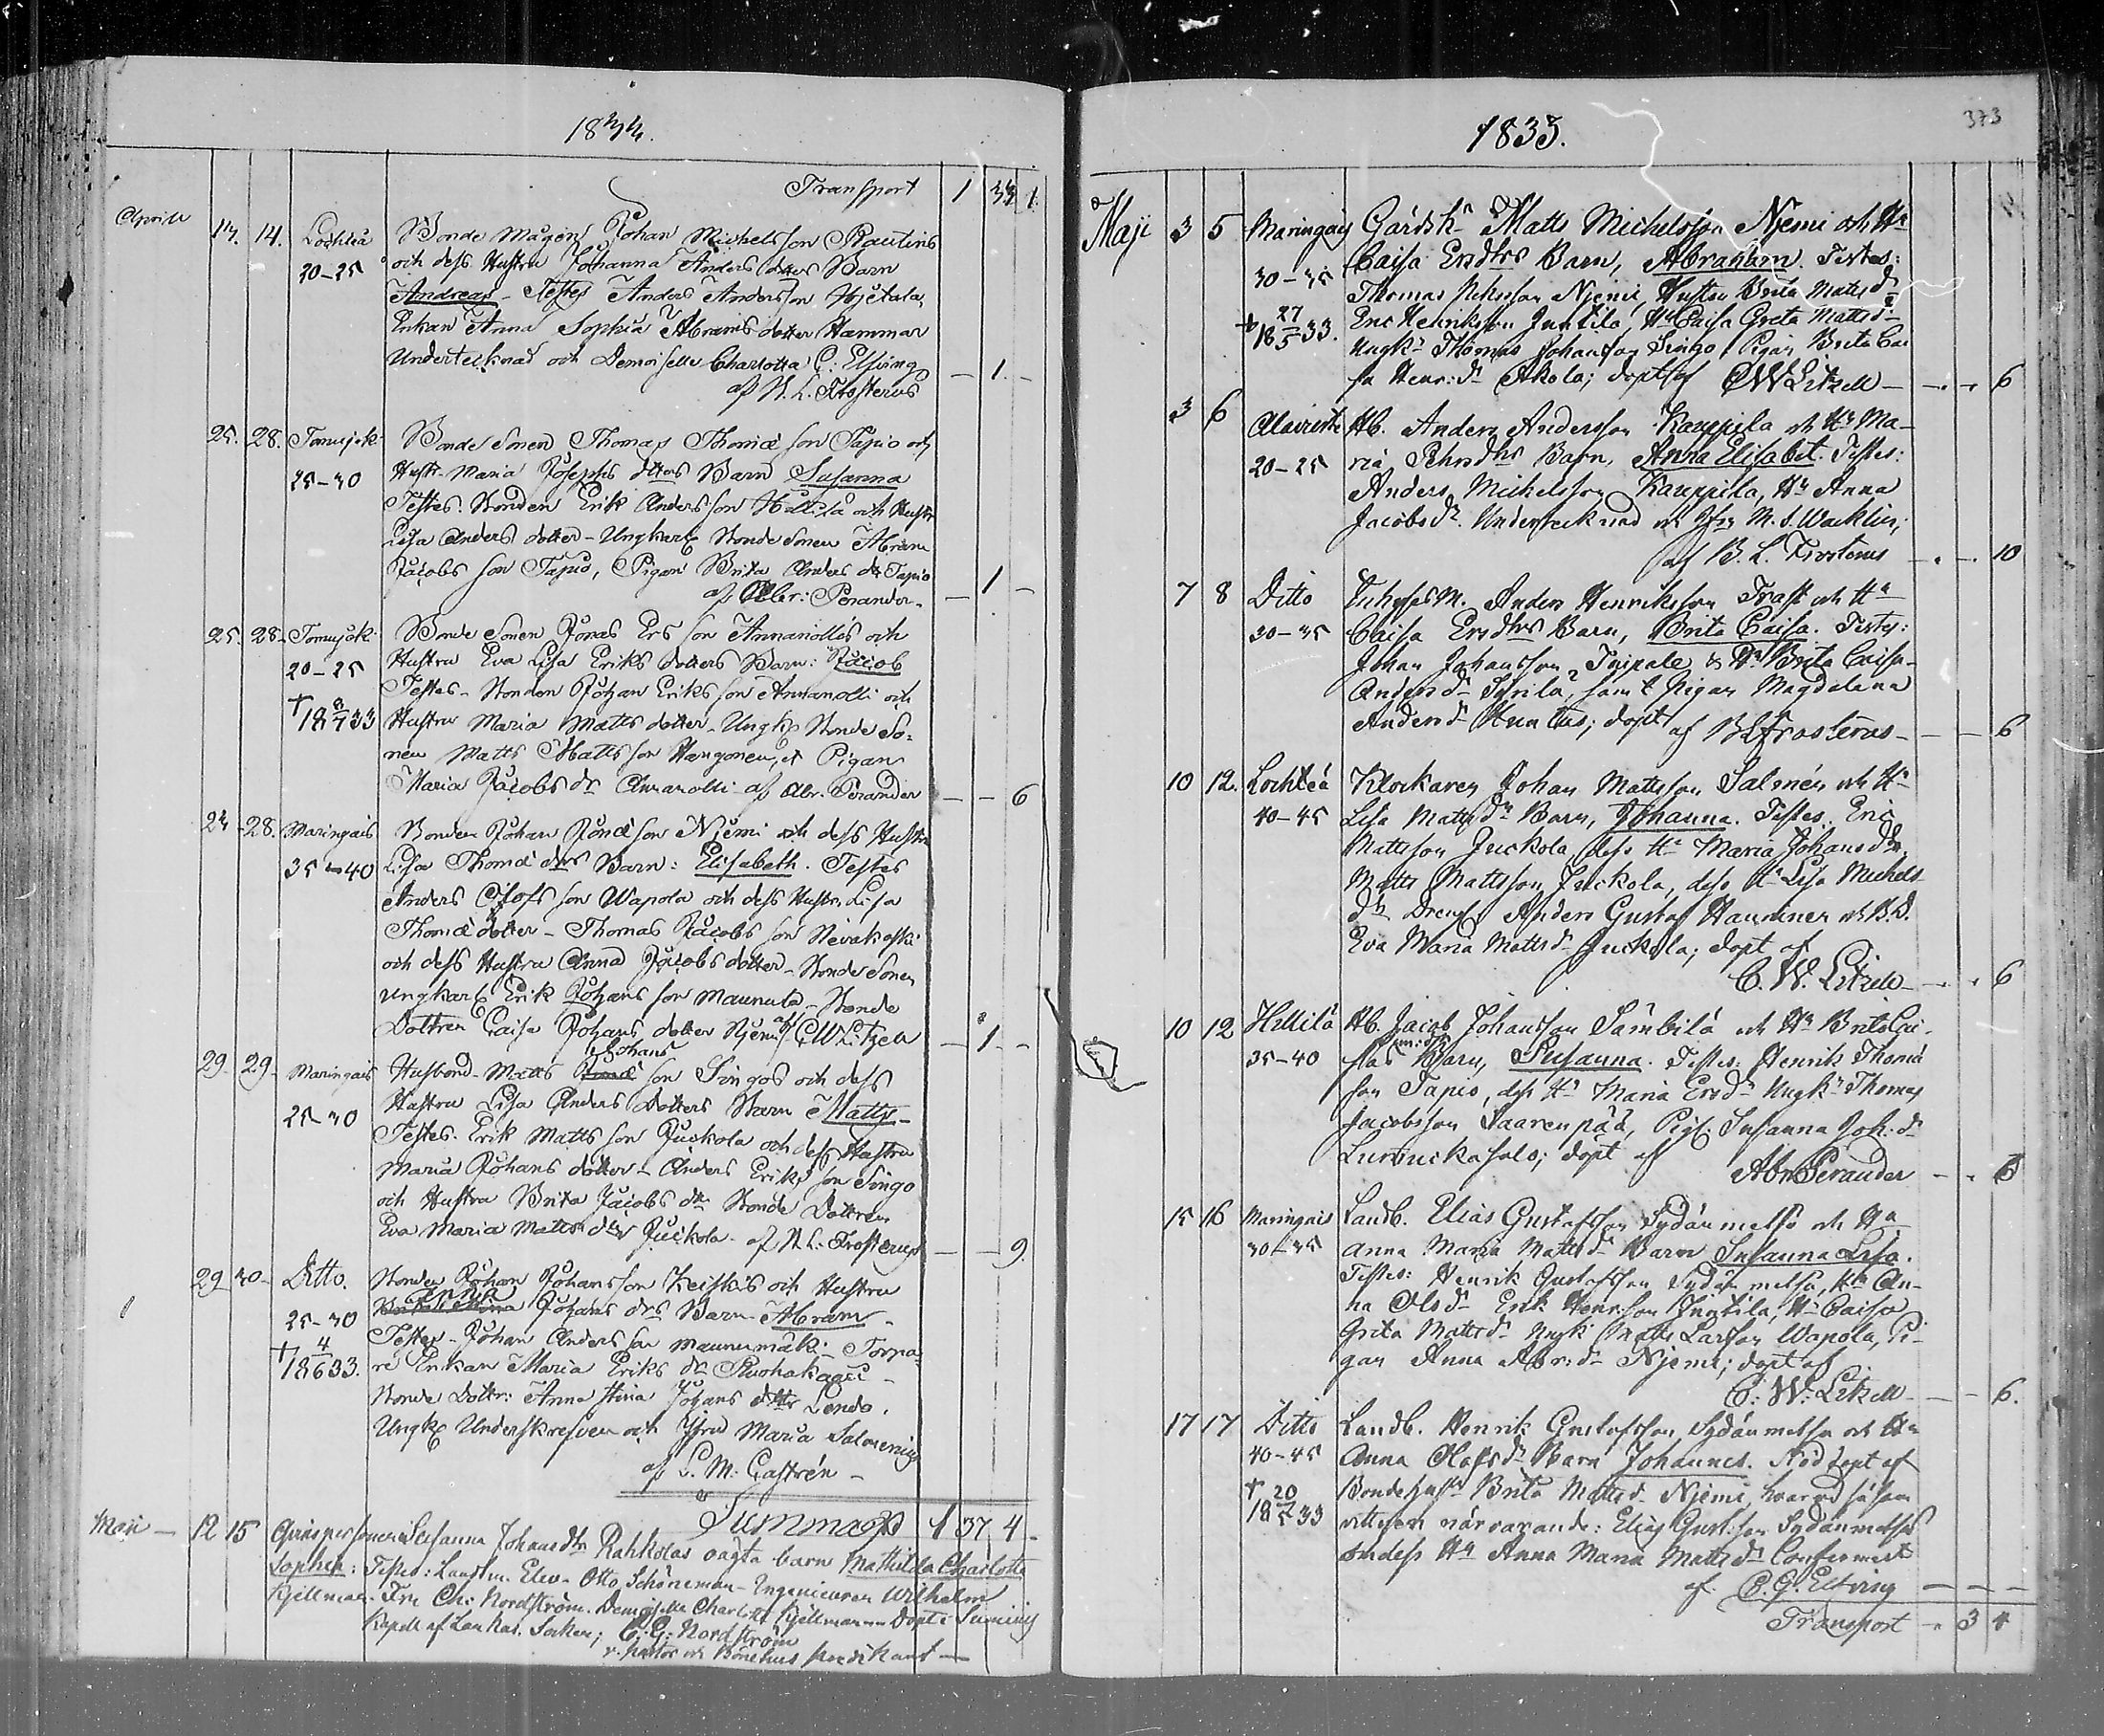 1833.
Transport 1 33 1.
Aprill 14. 14. Lochteå Bonde mågen Johan Michelsson Rautius
20-25 och dess Hustru Johanna Anders dtters Barn
Andreas - Testes Anders Andersson Hjetala,
Enkan Anna Sophia Abrams dotter Hammar
Undertecknad och Demoiselle Charlotta C: Elfving
af B. L. Frosterus - 1. -
25. 28. Tomujoki Bonde Sonen Thomas Thomæ son Tapio och
25-30 Hustr. Maria Josephs dtters Barn Susanna
Testes. Bonden Erik Anders son Hillilä och Hustr
Lisa Anders dotter - Ungkarl Bonde Sonen Abram
Jacobs son Tapio, Pigan Brita Anders dr Tapio
af Abr: Perander. - 1 -
25. 28. Tomujoki Bonde Sonen Jonas Ers son Annanollis och
20-25 Hustru Eva Lisa Eriks dotters Barn: Jacob
† 18 8/7 33 Testes - Bonden Johan Eriks son Annanolli och
Hustru Maria Matts dotter - Ungk. Bonde So-
nen Matts Matts son Hangonen, et Pigan
Maria Jacobs dr Annanolli af Abr. Perander - - 6
24 - 28. Maringais Bonden Johan Jonæ son Njemi och dess Hustru
35-40 Lisa Thomæ dtrs Barn: Elisabeth. Testes
Anders Olofs son Wapola och dess Hustr. Lisa
Thomæ dotter - Thomas Jacobs son Nevakoski
och dess Hustru Anna Jacobs dotter - Bonde Sonen
ungkarl Erik Johans son Maunula - Bonde
Dottren Caisa Johans dotter Njemi af CW Litzell - 1 -
29 - 29 - Maringais Husbond. Matts Johans son Singos och dess
25-30 Hustru Lisa Anders Dotters Barn Matts -
Testes. Erik Matts son Juckola och dess Hustru
Maria Johans dotter - Anders Eriks son Singo
och Hustru Brita Jacobs dtr Bonde Dottren
Eva Maria Matts dtr Juckola - af B. L. Frosterus - - 9.
29 30 - Ditto. Bonden Johan Johans son Keiskis och Hustru
25-30 Johans drs Barn Abram -
† 18 4/6 33. Testes - Johan Anders son Maunumäki - Torpa-
re Enkan Maria Eriks dr
Bonde Dottr: Anna Stina Johans dtter Lendo.
Ungk Underskrefven och Jfru Maria Salmenius
af L. M. Castrén -
Summa 1 37 4 -
Maji - 12 15 Qvinsperson Susanna Johansdtr Rahkolas oägta barn Mathilda Charlotta
Sophia: Testes: Landtm. Elev. Otto Schöneman - Ingenieuren Wilhelm
Kjellman. Fru Ch: Nordström. Demoiselle Charlott Kjellman - Döpt i Sumiais
Kapell af Laukas Socken; C: G: Nordström
v. Pastor och Bönehus predikant -
1833.
373
Maji 3 5 Maringais Gårdsk. Matts Michelsson Njemi och Hu
30-35 Caisa Ersdtrs Barn, Abraham. Testes:
† 18 27/5 33. Thomas Njemi, Hustru Brita Matsdr
Eric Henriksson Junttila, Hu Caisa Greta Mattsdr
Ungk. Thomas Johansson Singo, Pigan Brita Cai
sa Henr:dr Akola; döpt af CW Litzell - - - 6
3 6 Alaviirte Hb. Anders Andersson Karppila och Hu Ma-
20-25 ria Pehrsdtrs Barn, Anna Elisabet. Testes:
Anders Michelsson Karppila, Hu Anna
Jacobsdr. Undertecknad och Jfr M. S. Wacklin;
af B. L. Frosterus - - 10
7 8 Ditto Inhyses M. Anders Henriksson Trast och Hu
30-35 Caisa Ersdtrs Barn, Brita Caisa. Testes:
Johan Johansson Tripale & Hu Brita Caisa
Andersdr samt Pigan Magdelina
Andersdr Huntus; döpt af BL Frosterus - - 6
10 12. Lochteå Klockaren Johan Mattsson Salmén och Hu
40-45 Lisa Mattsdrs Barn, Johanna. Testes. Eric
Mattsson Juckola, dess Hu Maria Johansdtr.
Matts Mattsson Juckola, dess Hu Lisa Michels
dtr Dreng. Anders Gustaf Hammer och B.D.
Eva Maria Mattsdr Juckola; döpt af
C. W. Litzell - - 6
10 12 Hillilä Hb. Jacob Johansson Sämbilä och Hu Brita Cai-
35-40 sas m:dtr Barn, Susanna. Testes: Henrik Thomæ
son Tapio, dess Hu Maria Ersdr Ungk. Thomas
Jacobsson Saarenpää, Pig. Susanna Joh:dr
döpt af Abr Perander - - 6
15 16 Maringais Landb. Elias Gustafsson Sydänmetsä och Hu
30-35 Anna Maria Mattsdr Barn Susanna Lisa.
Testes: Henrik Gustafsson Sydänmetsä, Hu An-
na Olsdr Erik Henrsson Junttila, Hu Caisa
Greta Mattsdr Ungk. Matts Larsson Wapola, Pi-
gan Anna Abr:dr Njemi; döpt af
C: W: Litzell - - 6.
17 17 Ditto Landb. Henrik Gustafsson Sydänmetsä och Hu
40-45 Anna Olofsdr Barn Johannes. Nöddöpt af
† 18 20/5 33 Bondehust. Brita Mattsdr Njemi, hvarvid såsom
vittnen närvarande: Elias Gust:son Sydänmetsä
och dess Hu Anna Maria Mattsdr Confirmert
af C. G. Elfving - - -
Transport - 3 4